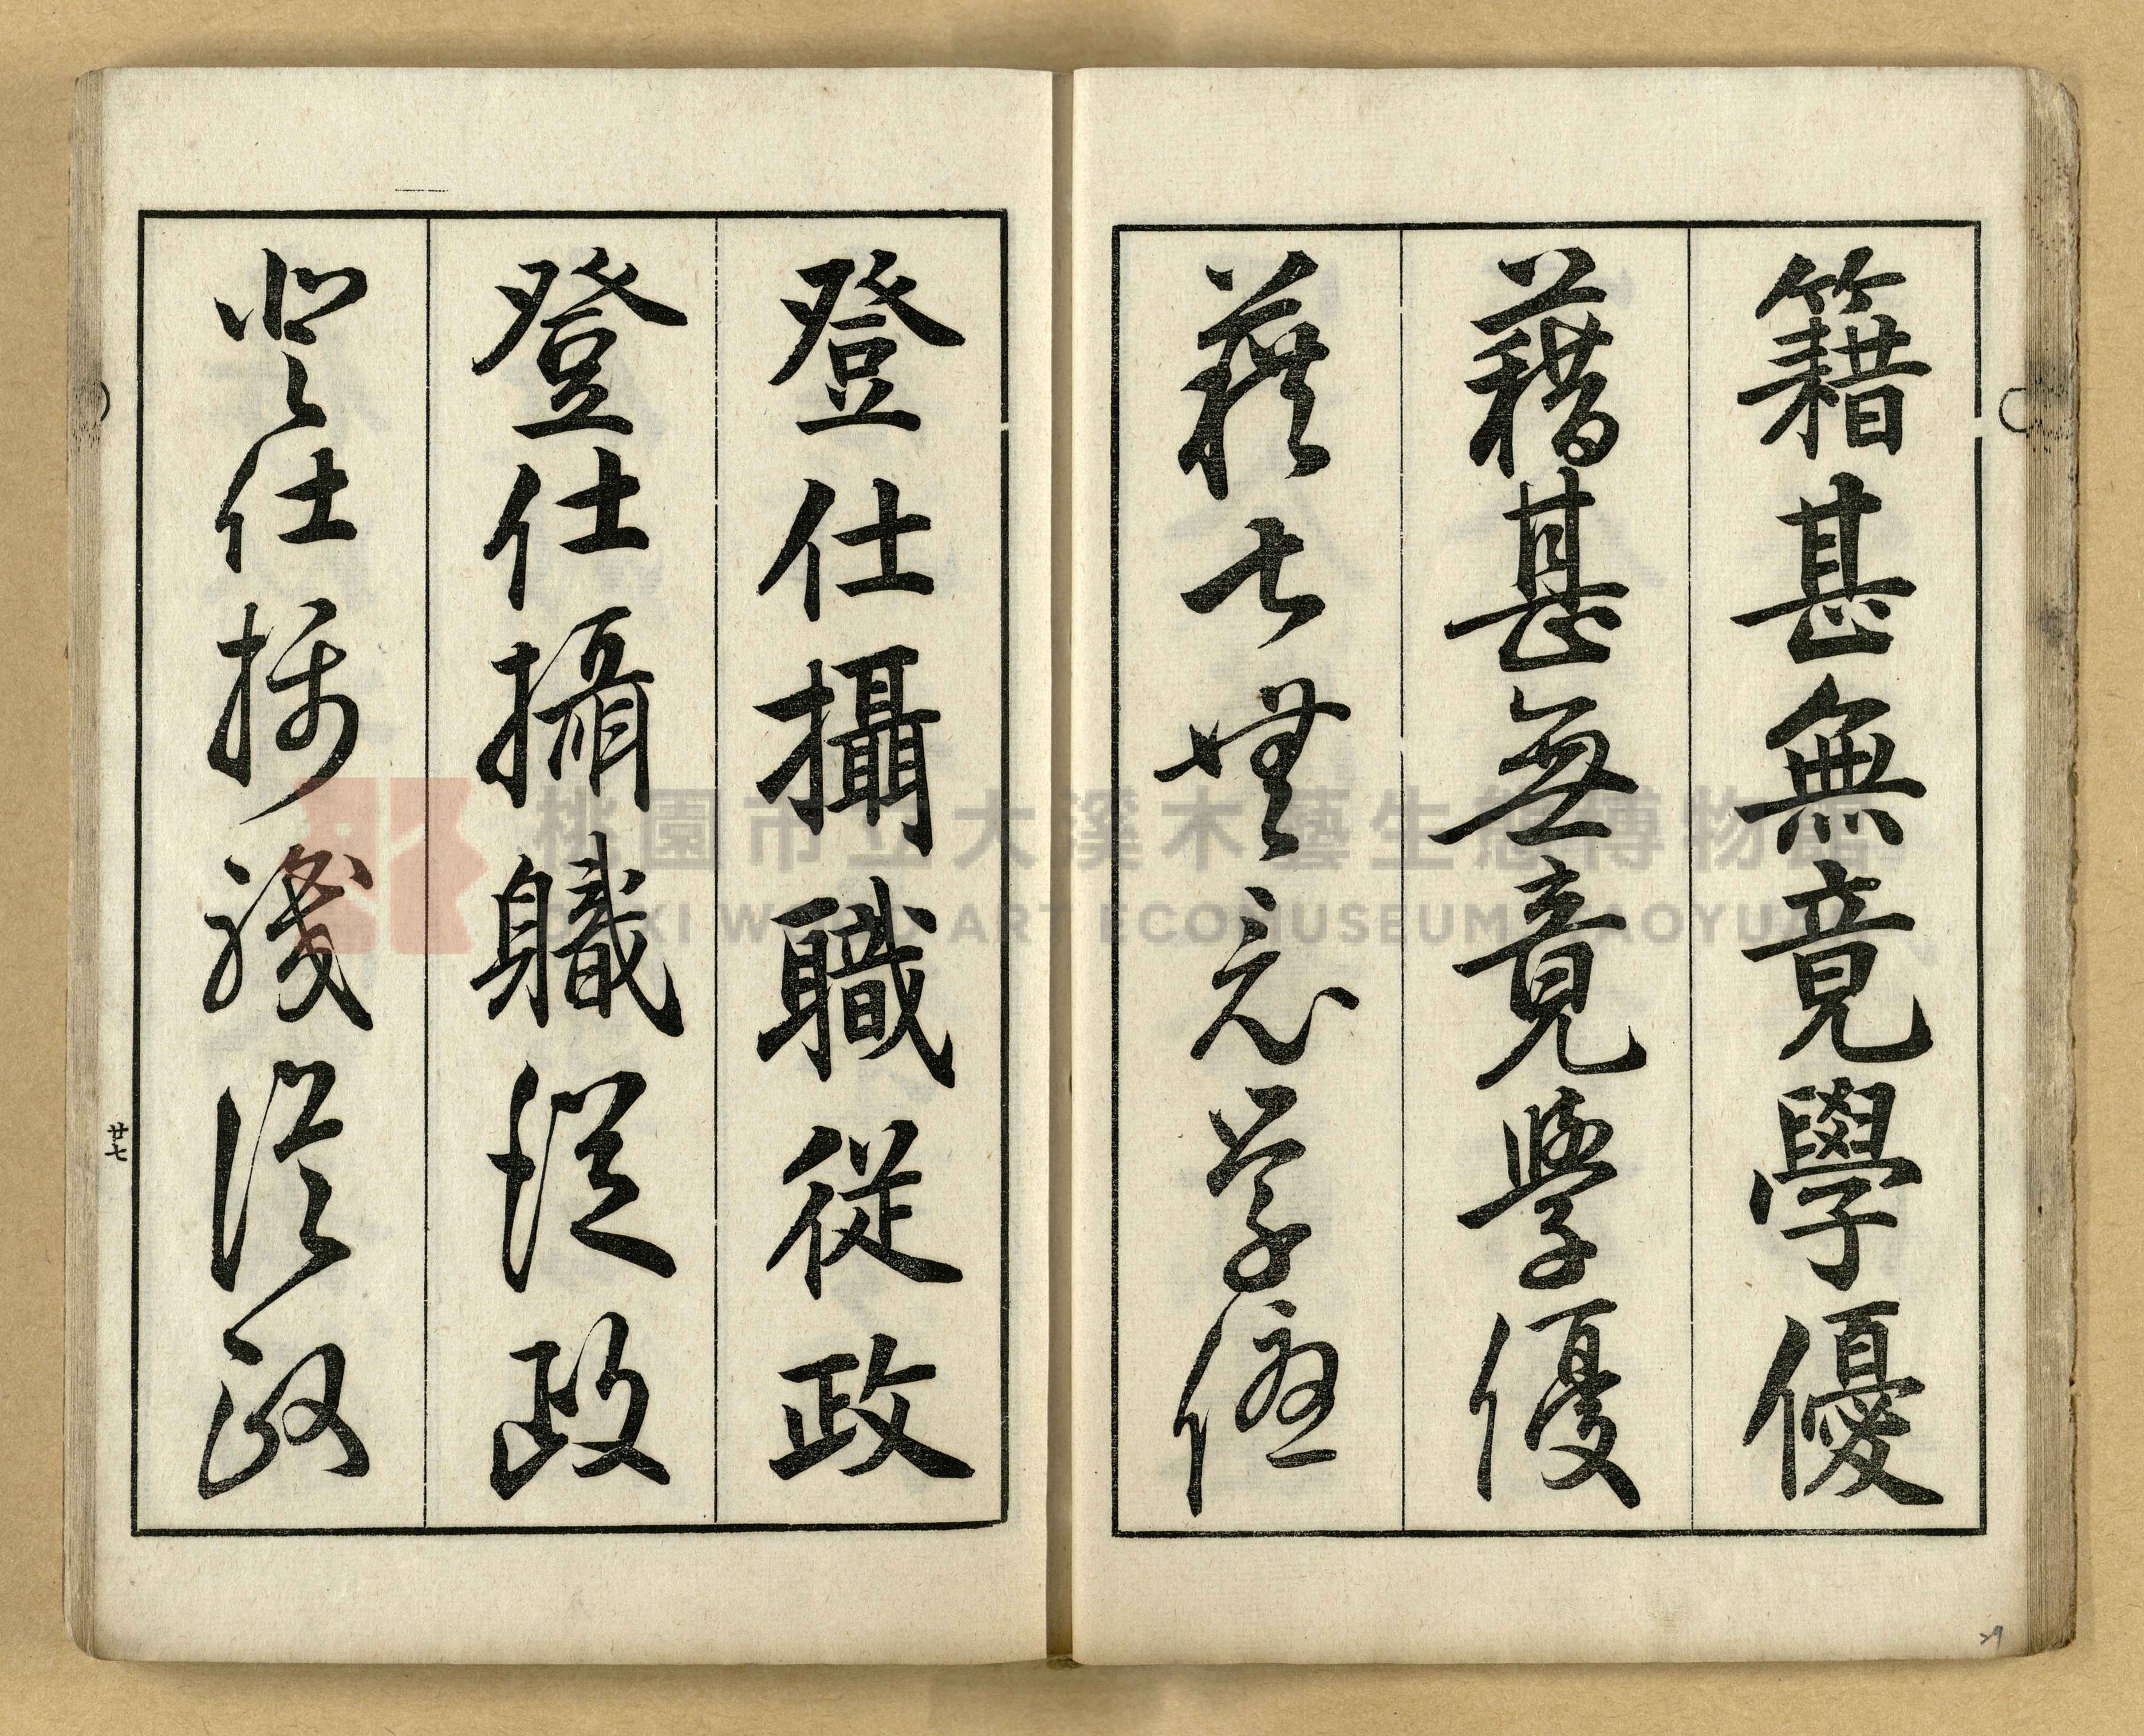 籍甚無竟學優
藉甚無竟學優
藉甚無竟學優
登仕攝職從政
登仕攝職從政
登仕攝職從政
廿七
29
桃園市立大溪木藝生態博物館
DAXI WOOD ART ECOMUSEUM, TAOYUAN